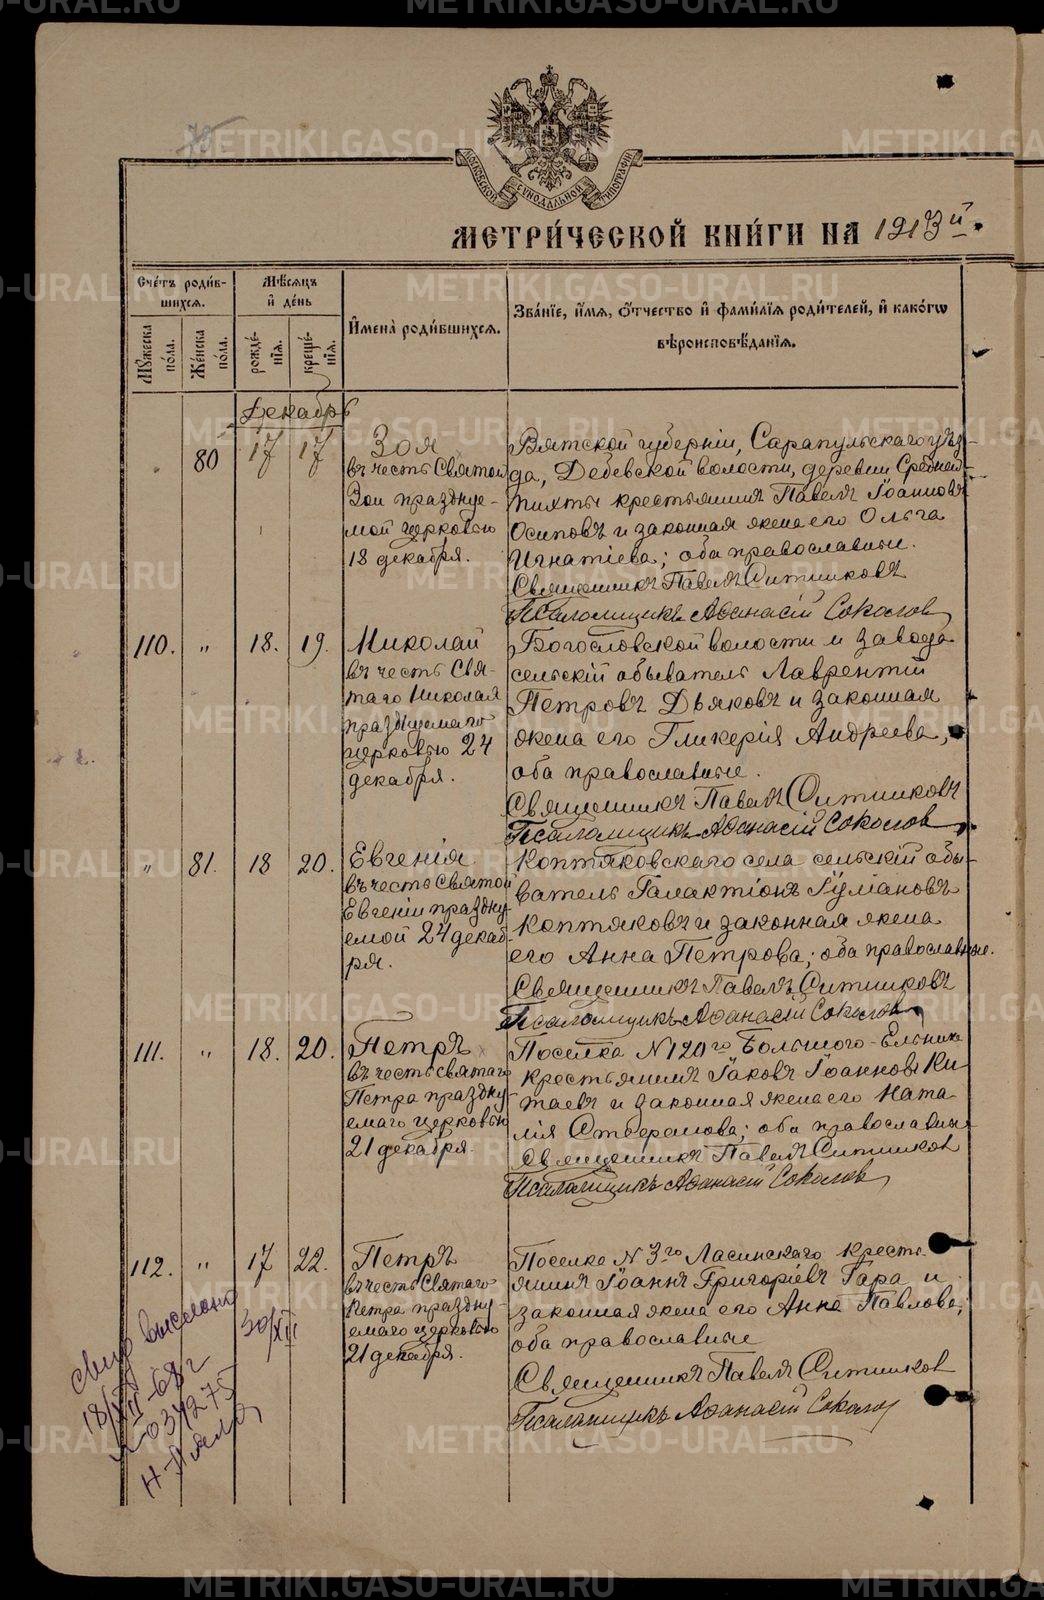 METRIKI.GASO-URAL.RU
МОСКОВСКОЙ СѴНОДАЛЬНОЙ ТИПОГРАФІИ
МЕТРИ́ЧЕСКОЙ КНИ́ГИ НА 1913 й.
Сче́тъ роди́в-
шихся.
Мѣ́сяцъ
и҆ де́нь
И҆мена̀ роди́вшихся.
Зва́нїе, и҆́мя, ѻ҆́тчество и҆ фами́лїя роди́телей, и҆ како́гѡ
вѣроисповѣ́данїя.
Мꙋ́жеска по́ла.
Же́нска по́ла.
рожде́нїя.
креще́нїя.
Декабрь
80 17 17 Зоя
въ честь Святой
Зои празднуе-
мой церковью
18 декабря.
Вятской губерніи, Сарапульскаго уѣз-
да, Дебевской волости, деревни Средней-
Пихты крестьянинъ Павелъ Іоанновъ
Осиповъ и законная жена его Ольга
Игнатіева; оба православные.
Священникъ Павелъ Ситниковъ
Псаломщикъ Аѳанасій Соколов
110. " 18. 19. Николай
въ честь Свя-
таго Николая
празднуемаго
церковью 24
декабря.
Богословской волости и завода
сельскій обыватель Лаврентій
Петровъ Дьяковъ и законная
жена его Гликерія Андреева,
оба православные.
Священникъ Павелъ Ситниковъ
Псаломщикъ Аѳанасій Соколов
" 81. 18 20. Евгенія
въ честь Святой
Евгеніи праздну
емой 24 декаб-
ря.
Коптяковскаго села сельскій обы-
ватель Галактіонъ Іуліановъ
Коптяковъ и законная жена
его Анна Петрова; оба православные.
Священникъ Павелъ Ситниковъ
Псаломщикъ Аѳанасій Соколов
111. " 18. 20. Петръ
въ честь святаго
Петра праздну
емаго церковью
21 декабря.
Поселка N 120го Большого-Ельника
крестьянинъ Іаковъ Іоанновъ Ки-
таевъ и законная жена его Ната
лія Стефанова; оба православные
Священникъ Павелъ Ситников
Псаломщикъ Аѳанасій Соколов
112. " 17 22. Петръ
въ честь Святаго
Петра праздну-
емаго церковью
21 декабря.
Поселка N 3го Ласинскаго кресть
янинъ Іоаннъ Григоріевъ Гара и
законная жена его Анна Павлова;
оба православные
Священникъ Павелъ Ситников
Псаломщикъ Аѳанасій Соколов
30/XII
выслано
18/XII-68 г
034275